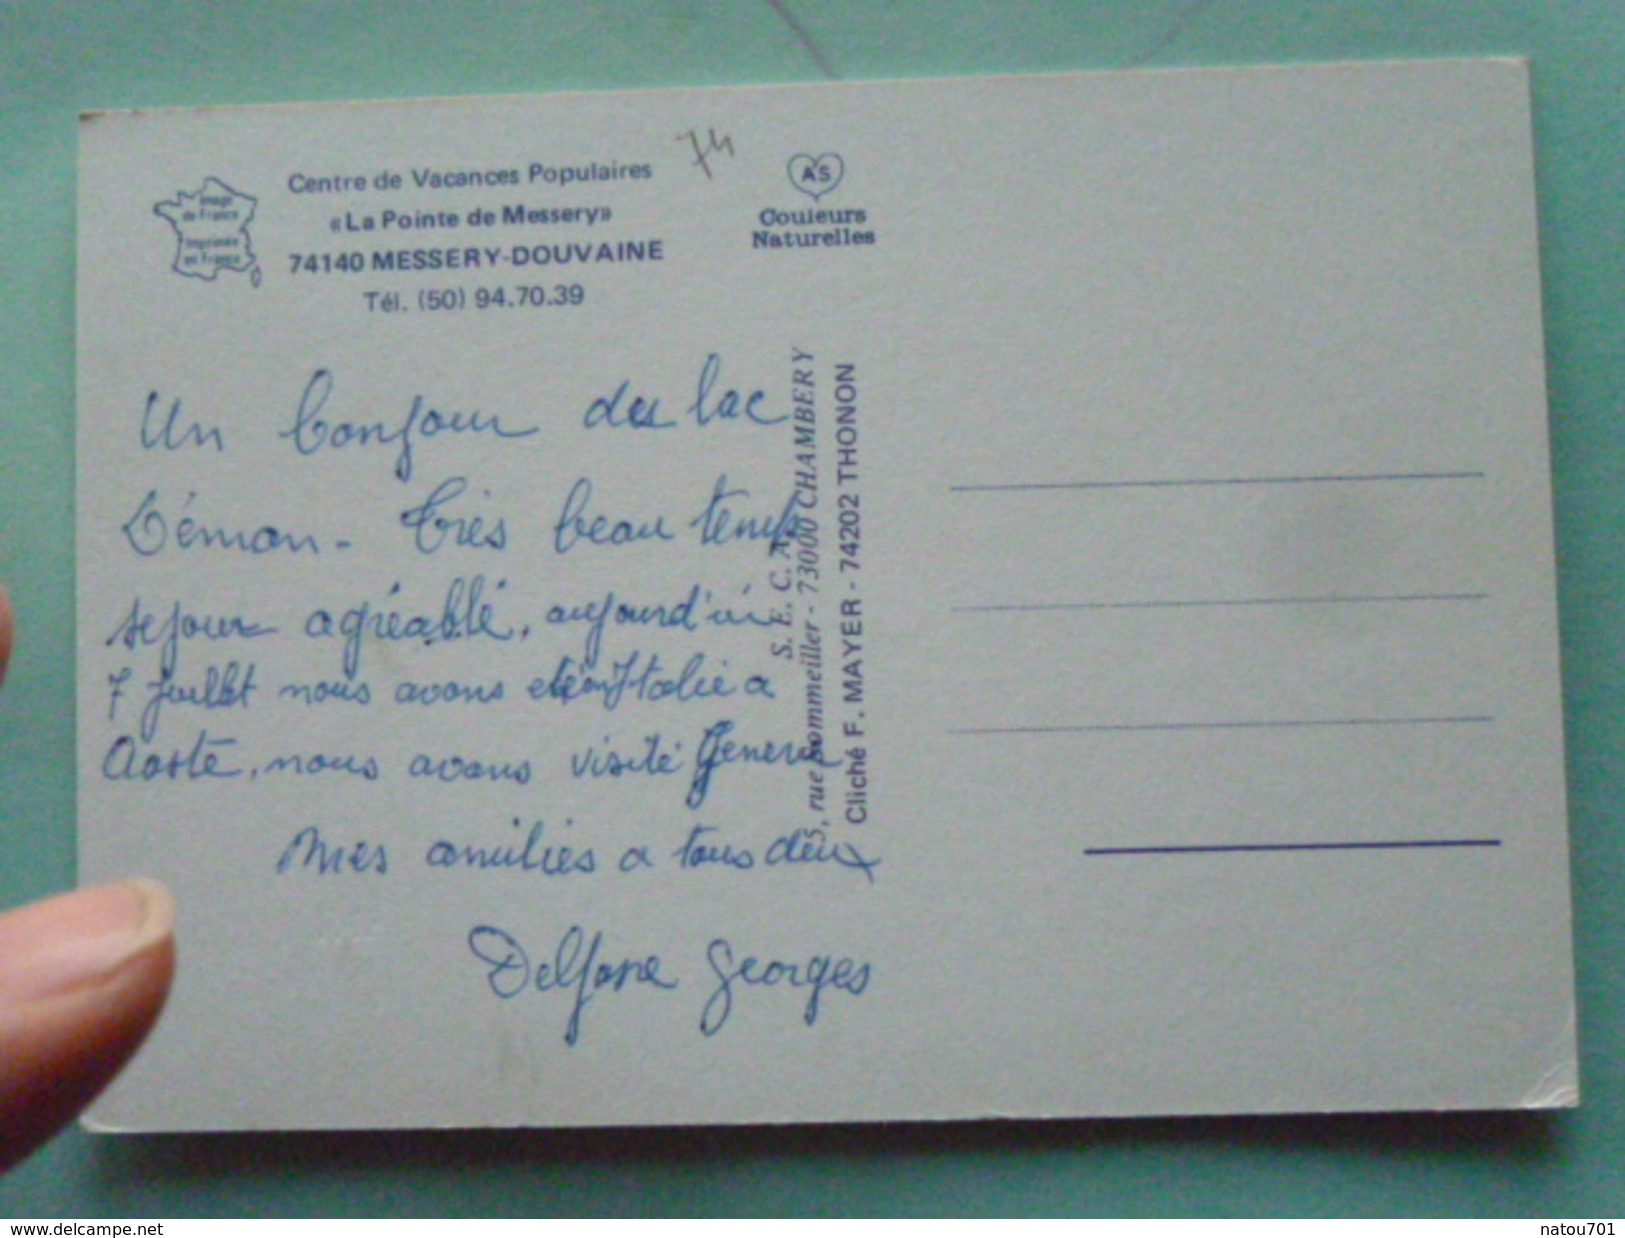 Image
de France
Imprimée
en France
Centre de Vacances Populaires
«La Pointe de Messery»
74140 MESSERY-DOUVAINE
Tél. (50) 94.70.39
74
AS
Couleurs
Naturelles
Un bonjour du lac
Léman - Très beau temps
sejour agréable, aujourd'ui
7 Juillet nous avons été en Italie a
Aoste, nous avons visité Geneve
Mes amitiés a tous deux
Georges
S. E. C. A.
5, rue Sommeiller - 73000 CHAMBERY
Cliché F. MAYER - 74202 THONON
www.delcampe.net
natou701